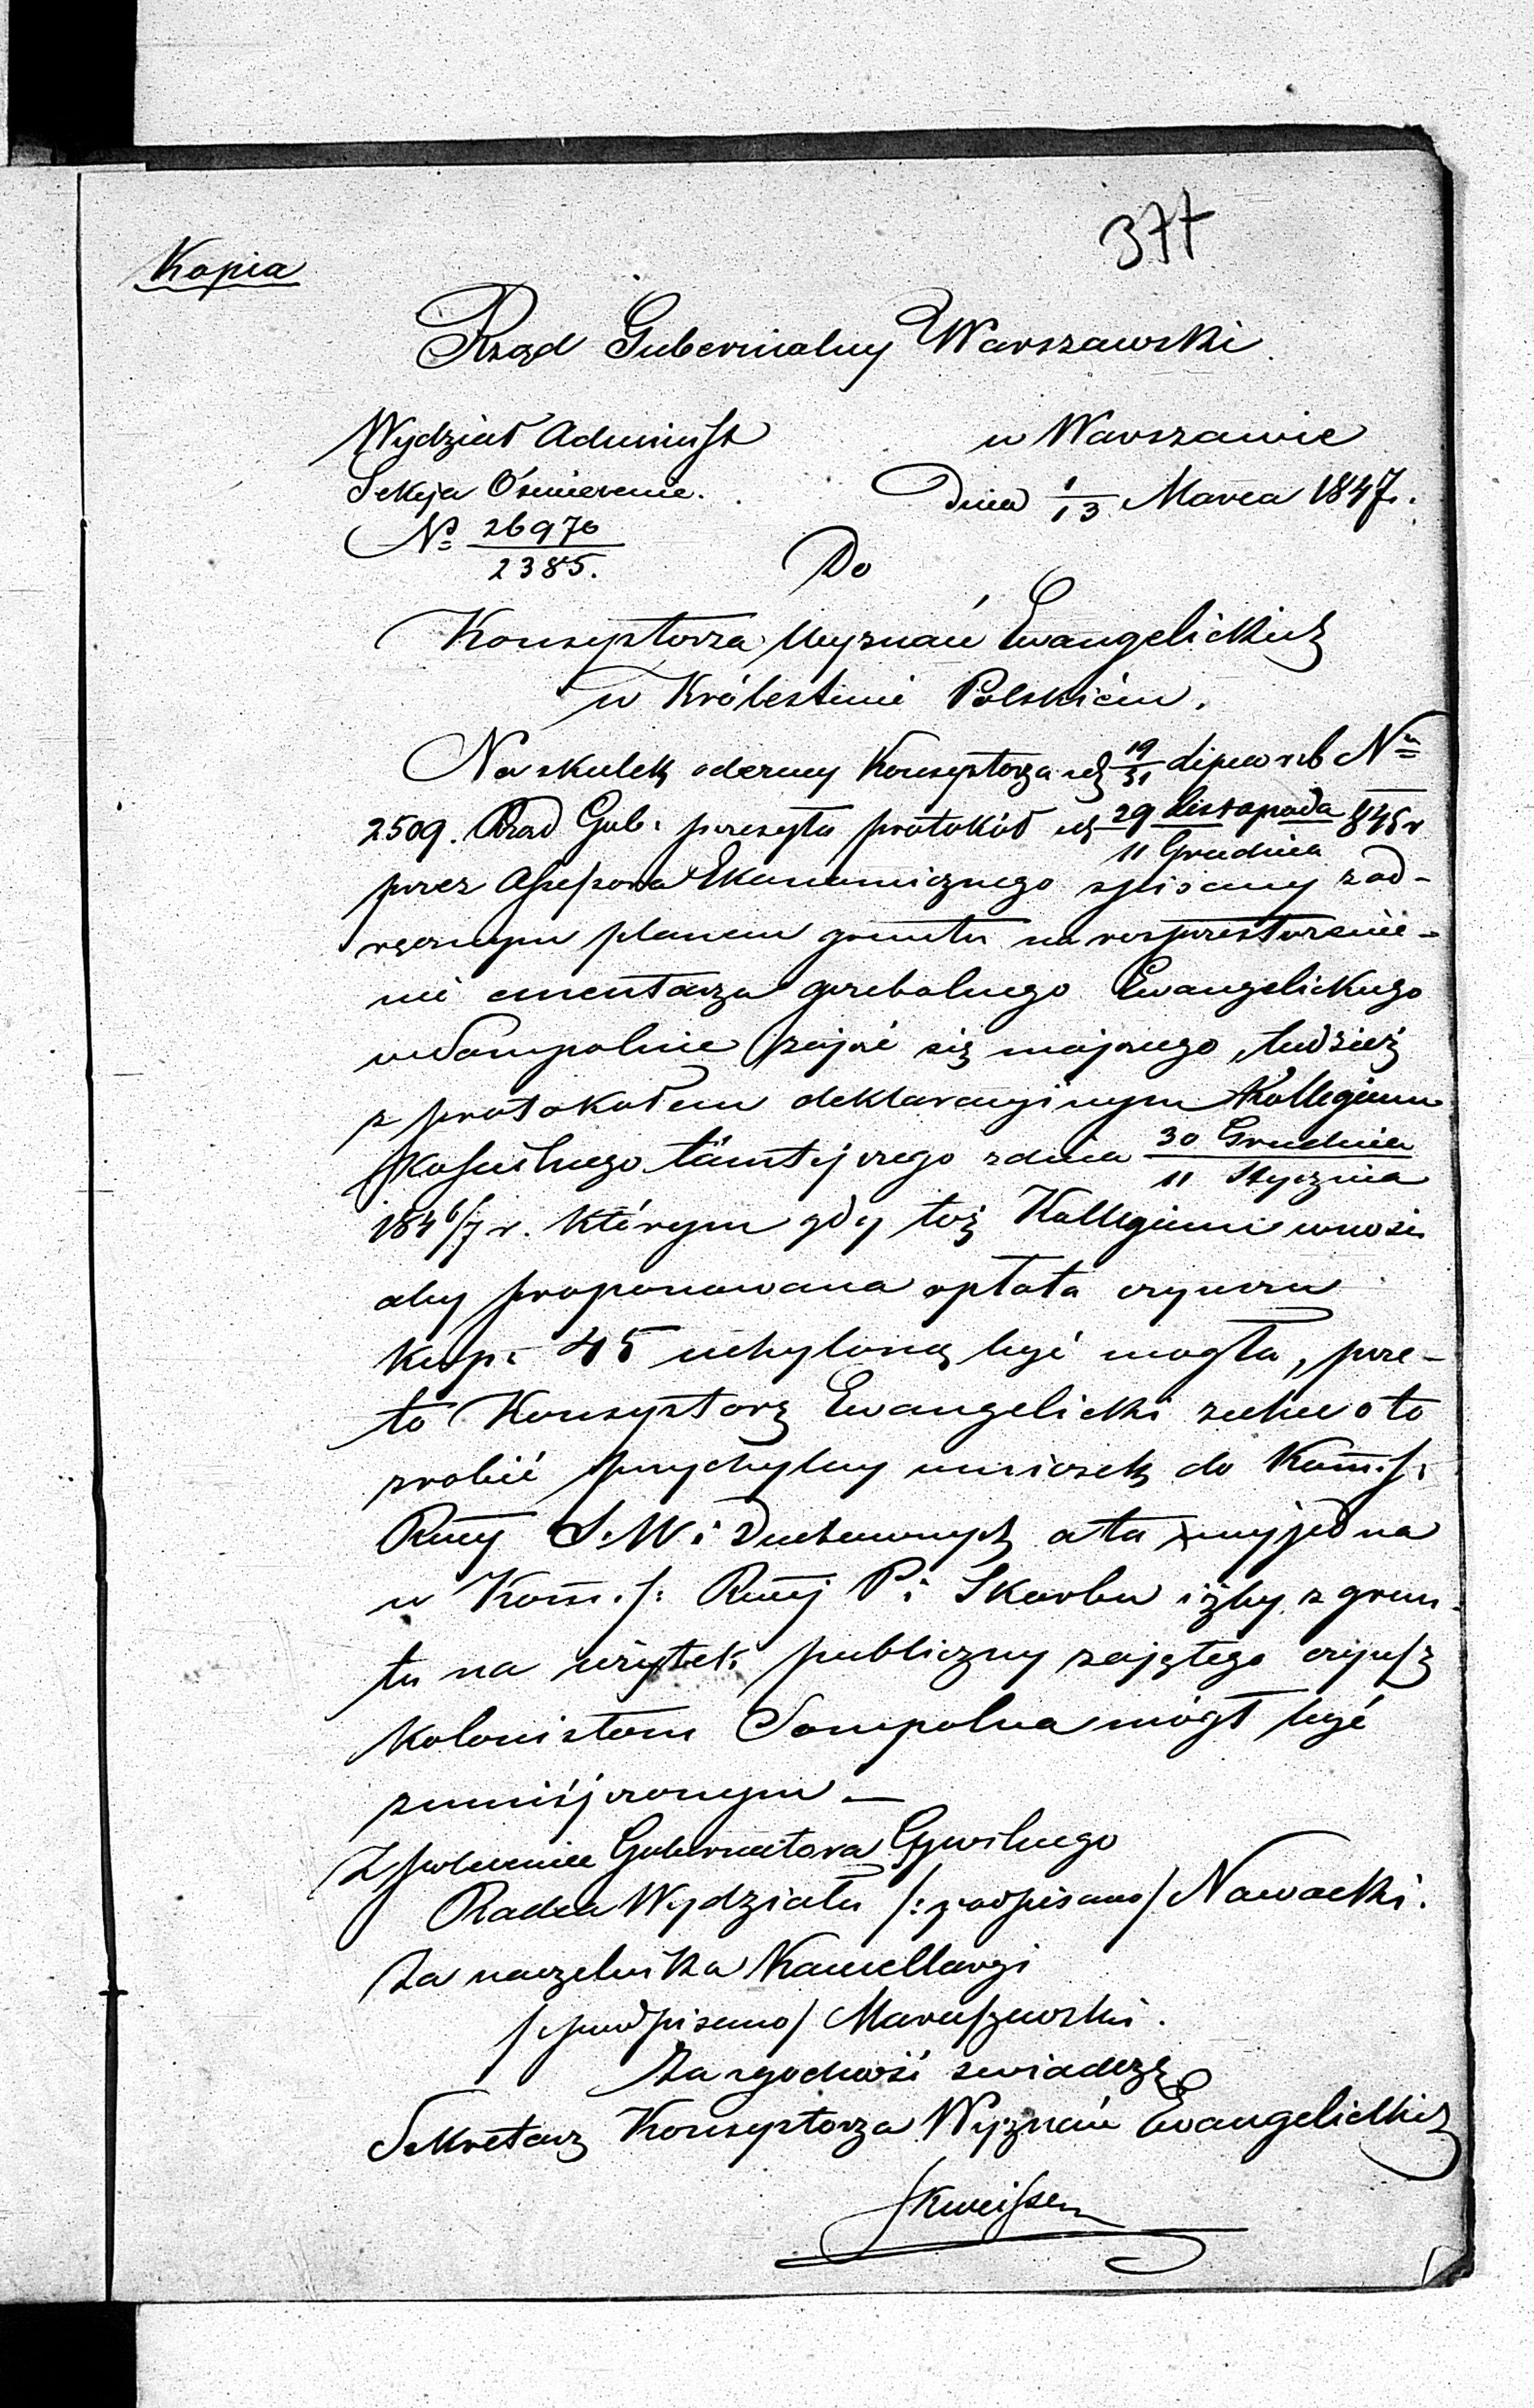 377
Kopia
Rząd Gubernialny Warszawski
Wydział Administ
w Warszawie
Sekcja
Dnia 1/13 Marca 1847.
№ 26970/2385.
Do
Konsystorza Wyznań Ewangelickich
w Królestwie Polskiém.
Na skutek odezwy Konsystorza z d 19/31 Lipca r.b №
2509. Rząd Gub: przesyła protokół z d 29 Listopada/11 Grudnia 845 r
przez Assesora Ekonomicznego spisany z od-
ręcznym planem gruntu na rosprzestrzenie-
nie cmentarza grzebalnego Ewangelickiego
w Sompolnie zająć się mającego, tudzież
z protokołem deklaracyjnym Kollegium
Kościelnego tamtejszego z dnia 30 Grudnia/11 Stycznia
184 6/7 r. którym gdy toż Kollegium wnosi
aby proponowana opłata czynszu
kop: 45 uchyloną być mogła, prze-
to Konsystorz Ewangelicki zechce o to
zrobić przychylny wniosek do Komis:
Rząj S. W. i Duchownych a ta wyjedna
w Komis: Rząj P. i Skarbu iżby z grun-
tu na użytek publiczny zajętego czynsz
kolonistom Sompolna mógł być
zmniéjszonym —
Z polecenia Gubernatora Cywilnego
Radca Wydziału /:podpisano/ Nawacki.
Za naczelnika Kancellaryi
/:podpisano/ Maruszewski.
Za zgodność świadczę
Sekretarz Konsystorza Wyznań Ewangelickich